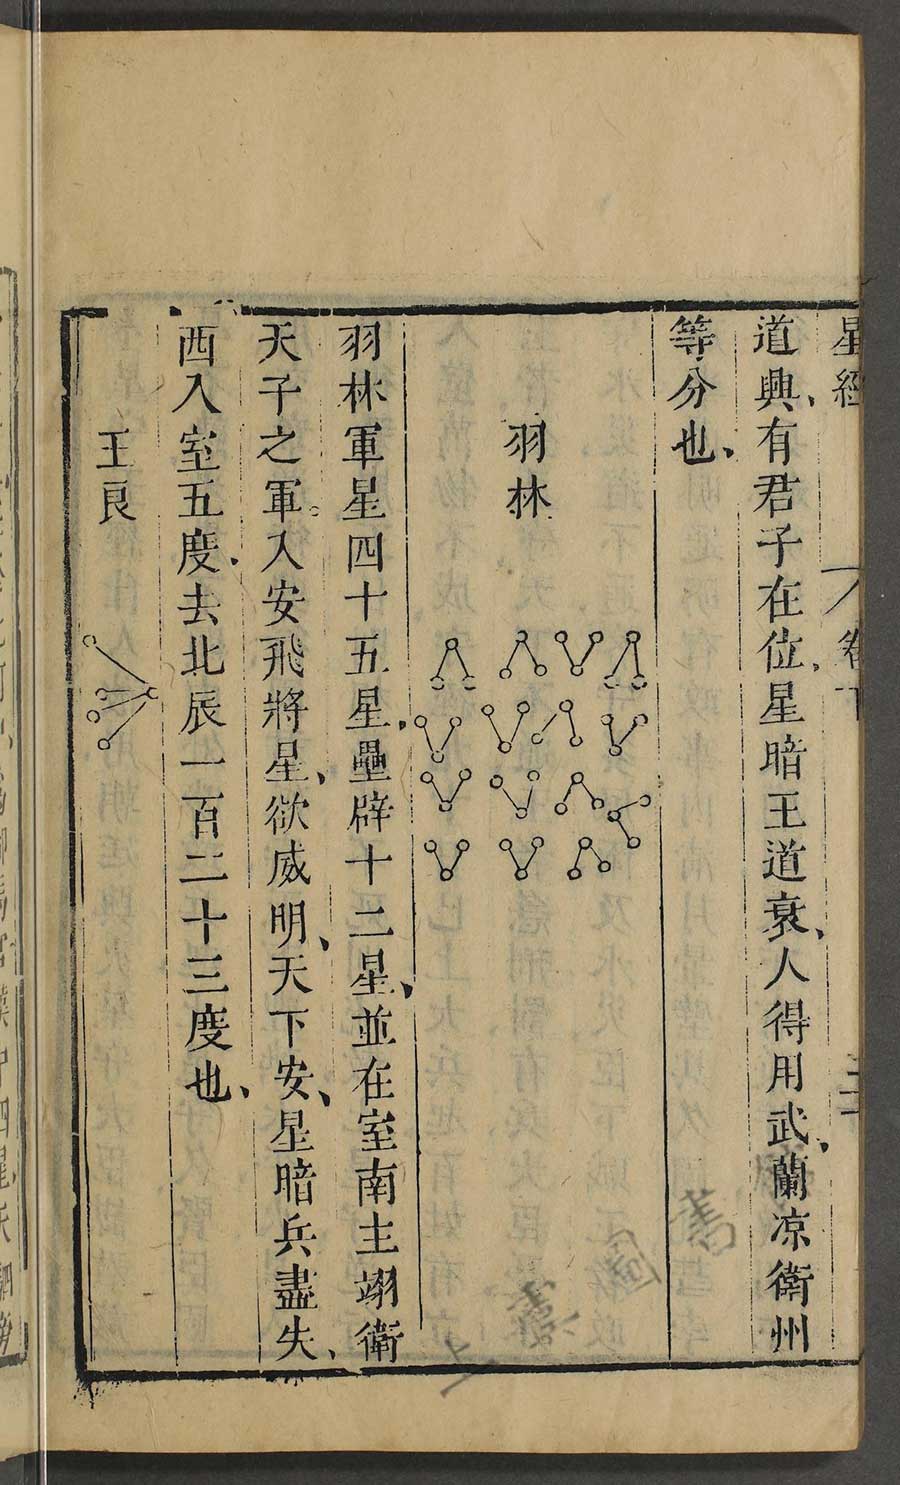 星經 卷下
道興有君子在位星暗王道衰人得用武蘭凉衛州
等分也
羽林
羽林軍星四十五星壘辟十二星並在室南主翊衛
天子之軍入安飛將星欲威明天下安星暗兵盡失
西入室五度去北辰一百二十三度也
王良